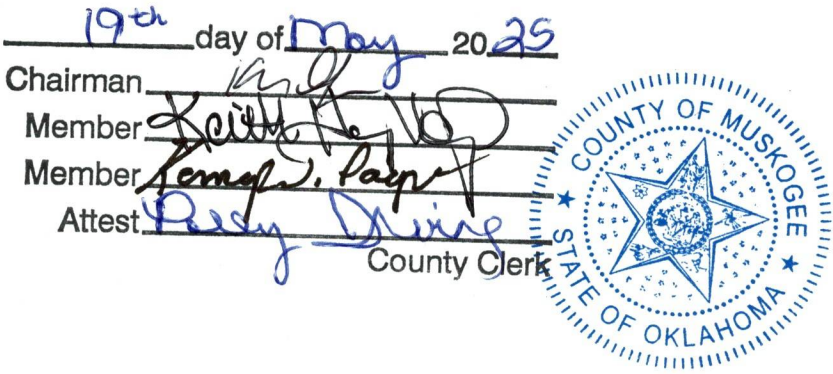 19th day of May 20 25
Chairman
Member Keith
Member Kenny Payne
Attest Polly Irving
County Clerk
COUNTY OF MUSKOGEE
STATE OF OKLAHOMA